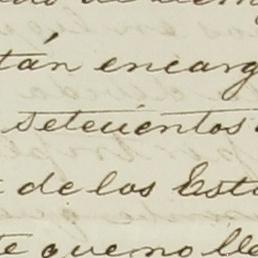 tán encarg
setecientos
de los Esta
que no lle